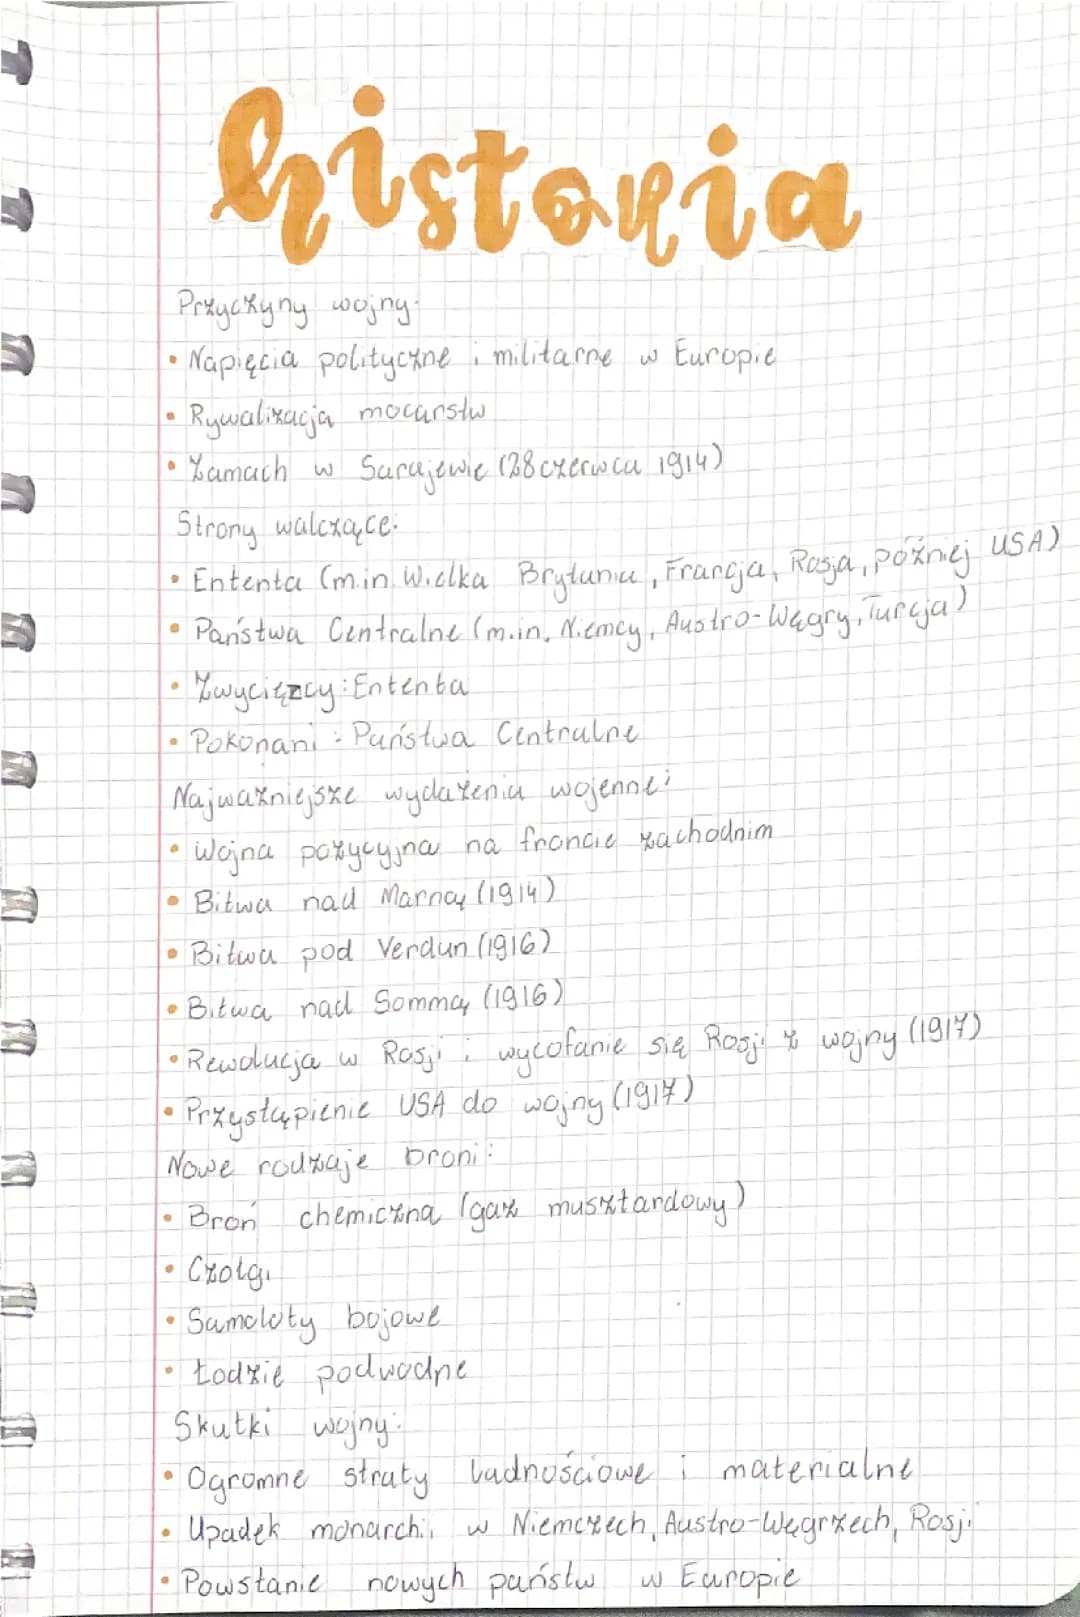 historia
Przyczyny wojny:
• Napięcia polityczne i militarne w Europie
• Rywalizacja mocarstw
• Zamach w Sarajewie (28 czerwca 1914)
Strony walczące:
• Ententa (m.in. Wielka Brytania, Francja, Rosja, później USA)
• Państwa Centralne (m.in. Niemcy, Austro-Węgry, Turcja)
• Zwycięzcy: Ententa
• Pokonani: Państwa Centralne
Najważniejsze wydażenia wojenne:
• Wojna pozycyjna na froncie zachodnim
• Bitwa nad Marną (1914)
• Bitwa pod Verdun (1916)
• Bitwa nad Sommą (1916)
• Rewolucja w Rosji i wycofanie się Rosji z wojny (1917)
• Przystąpienie USA do wojny (1917)
Nowe rodzaje broni:
• Broń chemiczna (gaz musztardowy)
• Czołgi
• Samoloty bojowe
• Łodzie podwodne
Skutki wojny:
• Ogromne straty ludnościowe i materialne
• Upadek monarchii w Niemczech, Austro-Węgrzech, Rosji
• Powstanie nowych państw w Europie